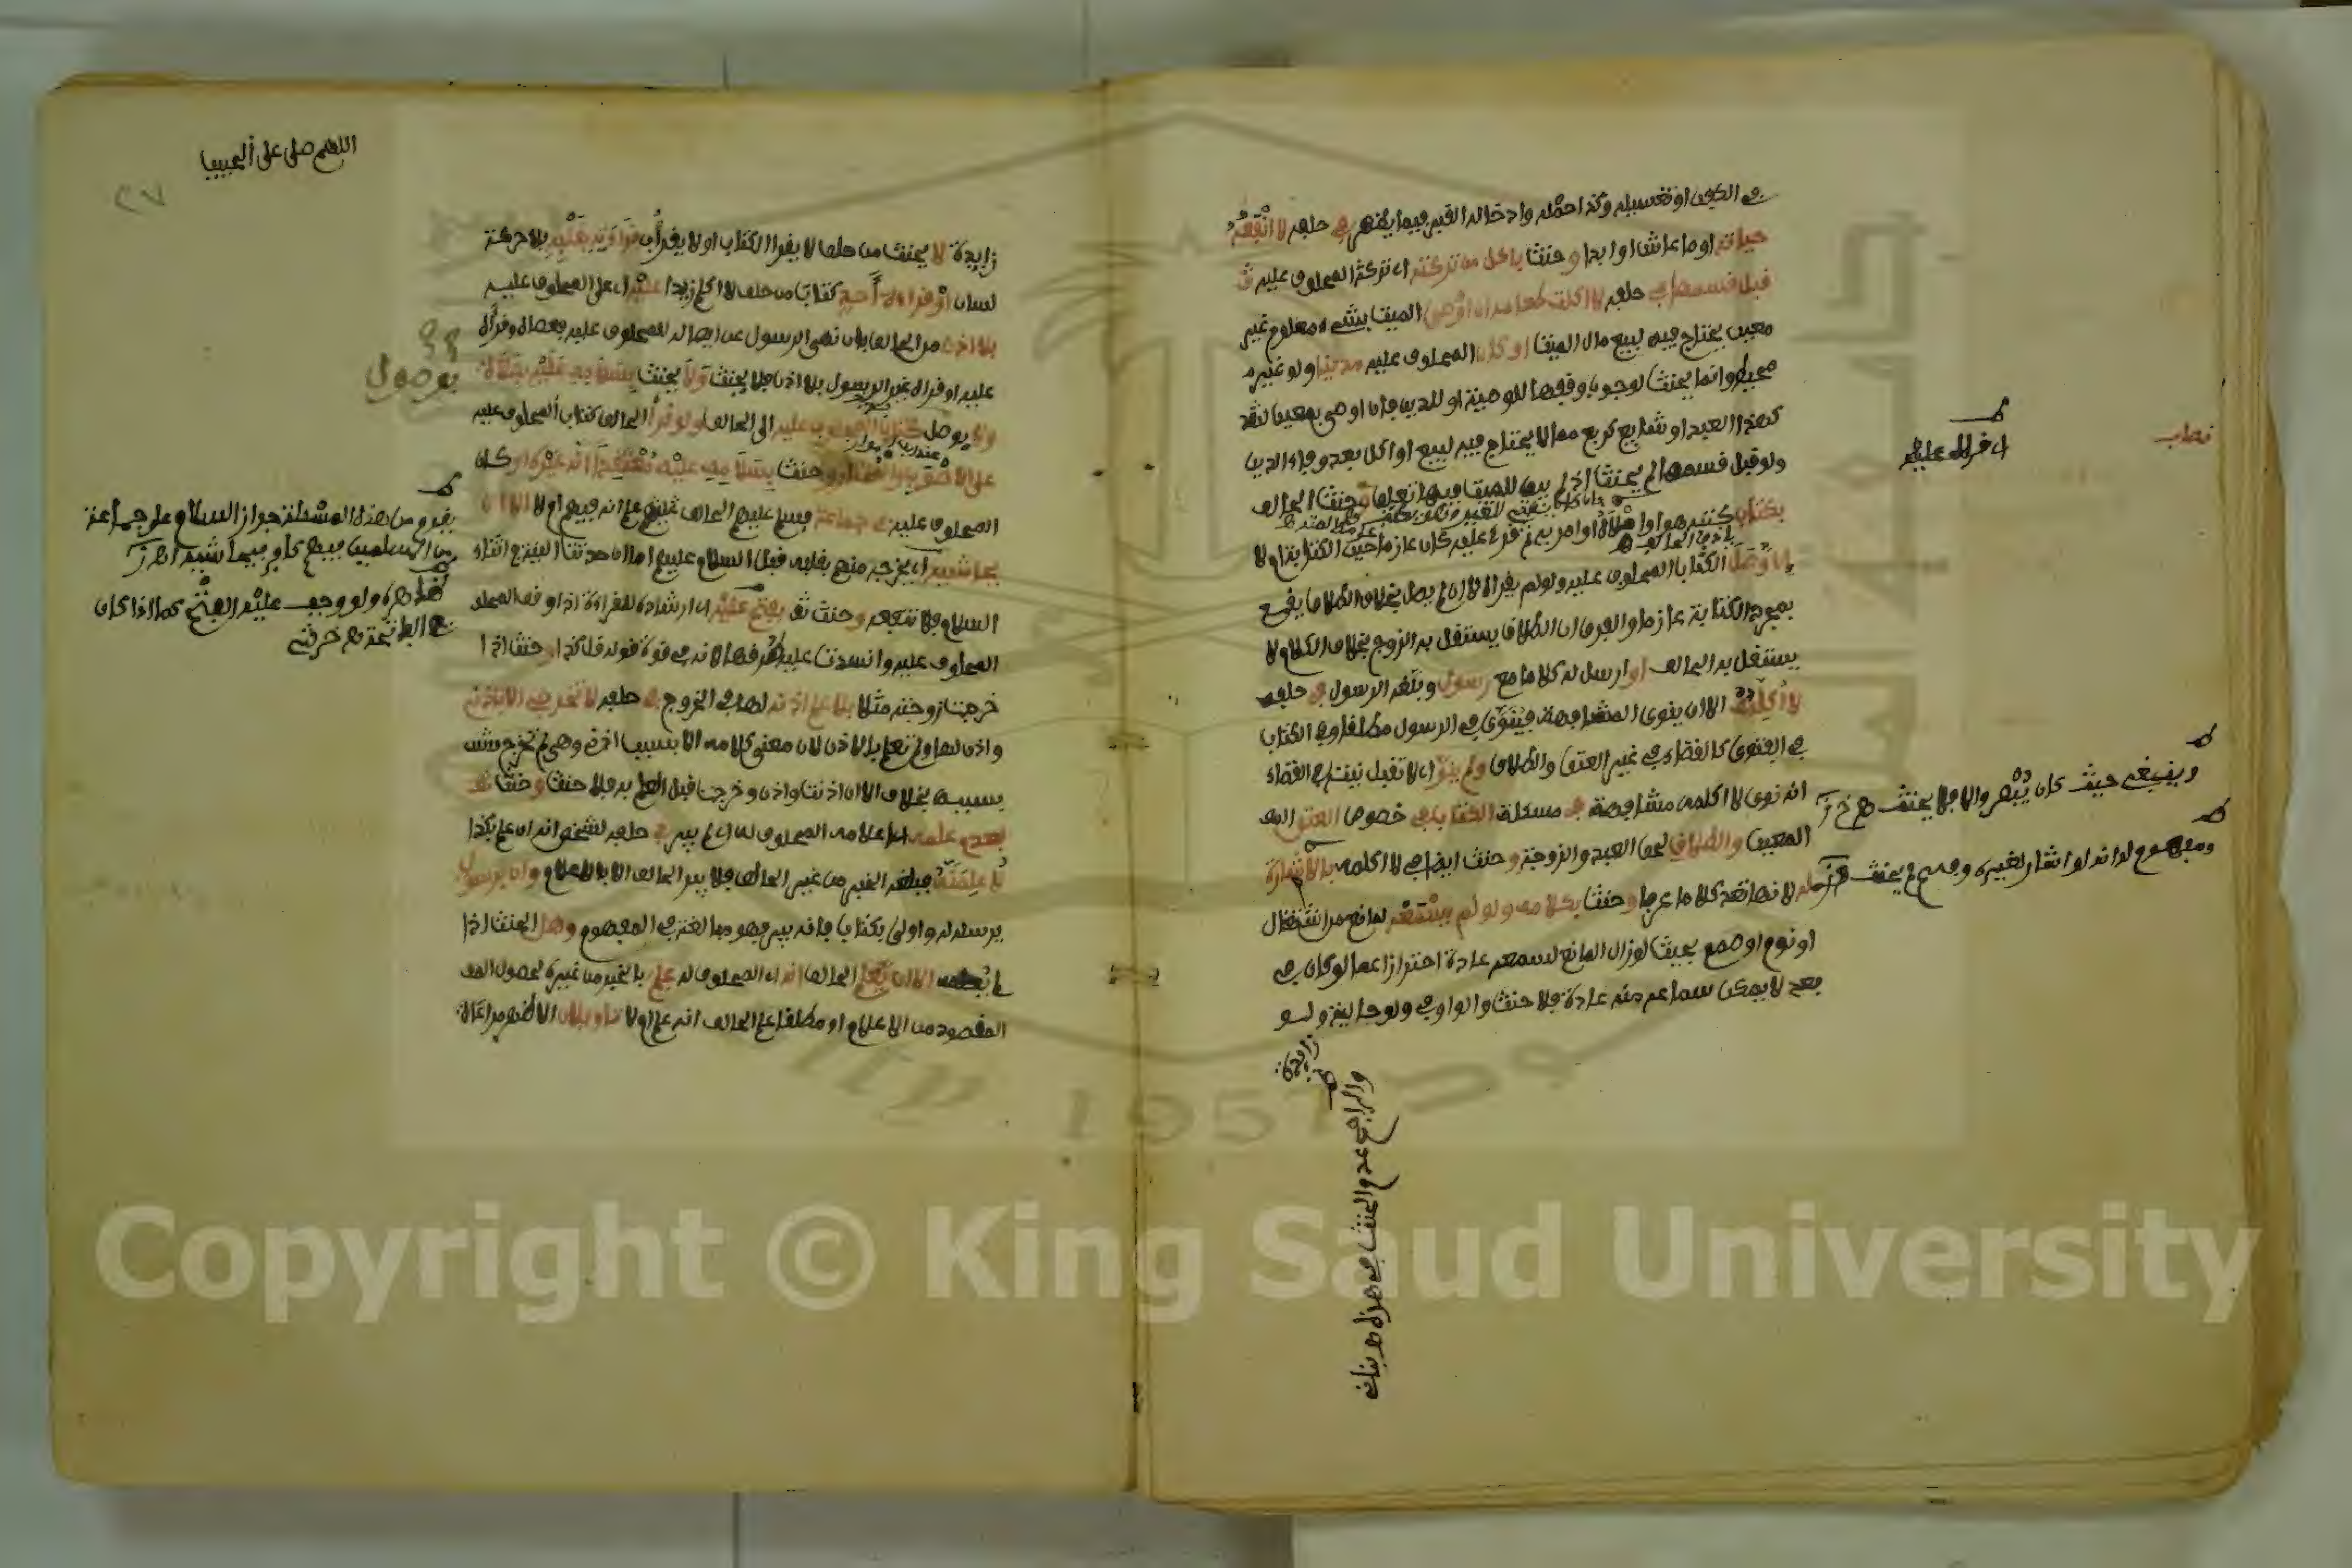 في الكفن او تغسيله وكذا حمله وادخاله القبر فيما يظهر في حلفه لا انفعه
حياته او ما عاش او ابدا وحنث باكل من تركته اي تركة المحلوف عليه
قبل قسمها في حلفه لا اكلت طعامه ان اوصى الميت بشيء معلوم غير
معين يحتاج فيه لبيع مال الميت او كان المحلوف عليه مدينا ولو غير
محيط وانما يحنث لوجوب وقفها للوصية او للدين فان اوصى بمعين لنقد
كهذا العبد او شايع كربع مما لا يحتاج فيه لبيع او اكل بعد وفاء الدين
ولو قبل قسمها لم يحنث اذ لم يبق للميت فيها تعلق وحنث الحالف
بكتاب كتبه هو او املاه او امر به ثم قرئ عليه كان عازما حين الكتابة ام لا
ان وصل الكتاب المحلوف عليه ولو لم يقراه لا ان لم يصل بخلاف الطلاق يقع
بمجرد الكتابة عازما والفرق ان الطلاق يستقل به الزوج بخلاف الكلام لا
يستقل به الحالف او ارسل له كلاما مع رسول وبلغه الرسول في حلفه
لا اكلمه الا ان ينوي المشافهة فينوى في الرسول مطلقا وفي الكتاب
في الفتوى كالقضاء في غير العتق والطلاق ولم ينو اي لا تقبل نيته في القضاء
انه نوى لا اكلمه مشافهة في مسئلة الكتاب في خصوص العتق
المعين والطلاق لحق العبد والزوجة وحنث ايضا في لا اكلمه بالاشارة
له لانها تعد كلاما عرفا وحنث بكلامه ولو لم يسمعه لمانع من اشتغال
او نوم او صمم بحيث لو زال المانع لسمعه عادة احترازا عما لو كان في
بعد لا يمكن سماعه منه عادة فلا حنث والواو في ولو حالية ولو
زايدة
والراجح عدم الحنث في هذه بناني
اي قراه عليه
وينبغي حيث كان يبصر والا فلا يحنث
ومفهوم له انه لو اشار لغيره وفهم لم يحنث
اللهم صل على الحبيب
٢٧
زايدة لا يحنث من حلف لا يقرا الكتاب او لا يقرا بقراءته بقلبه بلا حركة
لسان او قراءة احد كتابا من حلف لا اكلم زيدا عليه اي على المحلوف عليه
بلا اذن من الحالف بان نهى الرسول عن ايصاله للمحلوف عليه فعصاه وقراه
عليه او قراه غير الرسول بلا اذن فلا يحنث ولا يحنث بسلامه عليه بصلاة
ولا يوصل كتاب المحلوف عليه الى الحالف ولو قرا الحالف كتاب المحلوف عليه
على الاصوب والمختار وحنث بسلامه عليه معتقدا انه غيره او كان
المحلوف عليه في جماعة فسلم عليهم الحالف علم انه فيهم او لا الا ان
يحاشيه اي يخرجه منهم بقلبه قبل السلام عليهم اما ان حدثت النية في اثناء
السلام فلا تنفعه وحنث بفتح عليه اي ارشاده للقراءة اذا وقف
المحلوف عليه وانسدت عليه طرقها لانه في قوة قوله قل كذا وحنث اذا
خرجت زوجته مثلا بلا علم اذنه لها في الخروج في حلفه لا تخرجي الا باذني
واذن لها ولم تعلم بالاذن لان معنى كلامه الا بسبب اذني وهي لم تخرج
بسببه بخلاف الا ان اذنت واذن وخرجت قبل العلم به فلا حنث وحنث
بعدم علمه اي اعلامه المحلوف له اي لم يبر في حلفه لشخص انه ان علم بكذا
ليعلمنه فبلغه الخبر من غير الحالف فلا يبر الحالف الا بالاعلام وان برسول
يرسله له واولى بكتاب فانه يبر فهو مبالغة في المفهوم وهل الحنث اذا
لم يعلمه الا ان يعلم الحالف انه اي المحلوف له علم بالخبر من غيره لحصول
المقصود من الاعلام او مطلقا علم الحالف انه علم او لا تاويلان الاظهر مراعاة
يوصول
يفهم من هذه المسئلة جواز السلام على جماعة
من المسلمين فيهم كافر
ظاهره ولو وجب عليه الفتح كما اذا كان
في الفاتحة خرشي